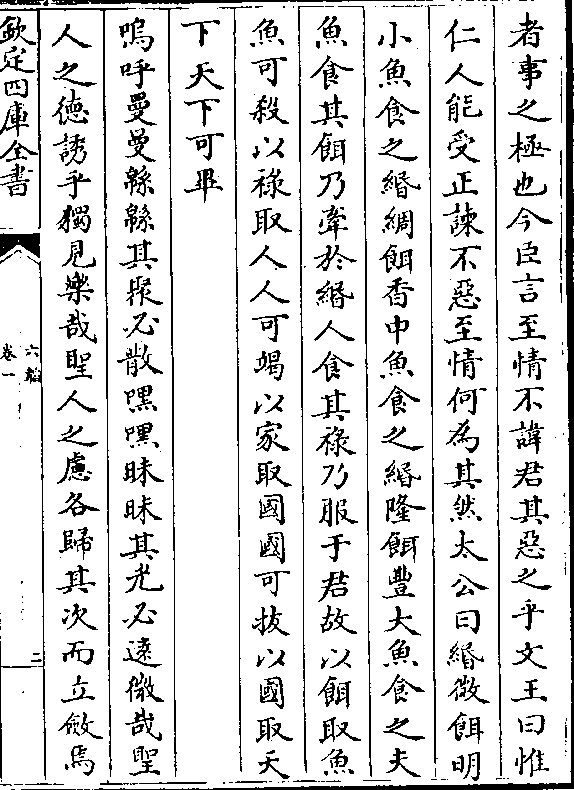 者事之極也今臣言至情不諱君其惡之乎文王曰惟
仁人能受正諫不惡至情何為其然太公曰緡微餌明
小魚食之緡綢餌香中魚食之緡隆餌豐大魚食之夫
魚食其餌乃牽於緡人食其祿乃服于君故以餌取魚
魚可殺以祿取人人可竭以家取國國可拔以國取天
下天下可畢
嗚呼曼曼緜緜其聚必散嘿嘿昧昧其光必遠微哉聖
人之德誘乎獨見樂哉聖人之慮各歸其次而立斂焉
欽定四庫全書
六韜
卷一
二